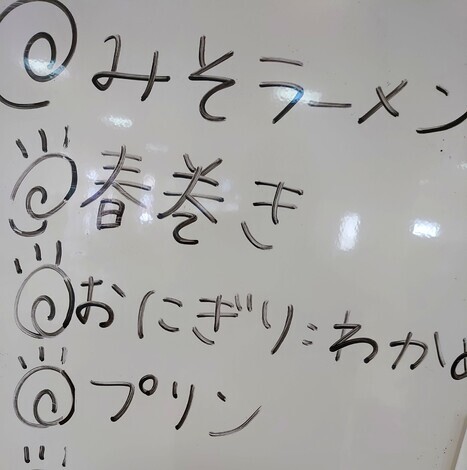 みそラーメン
春巻き
おにぎり:わかめ
プリン